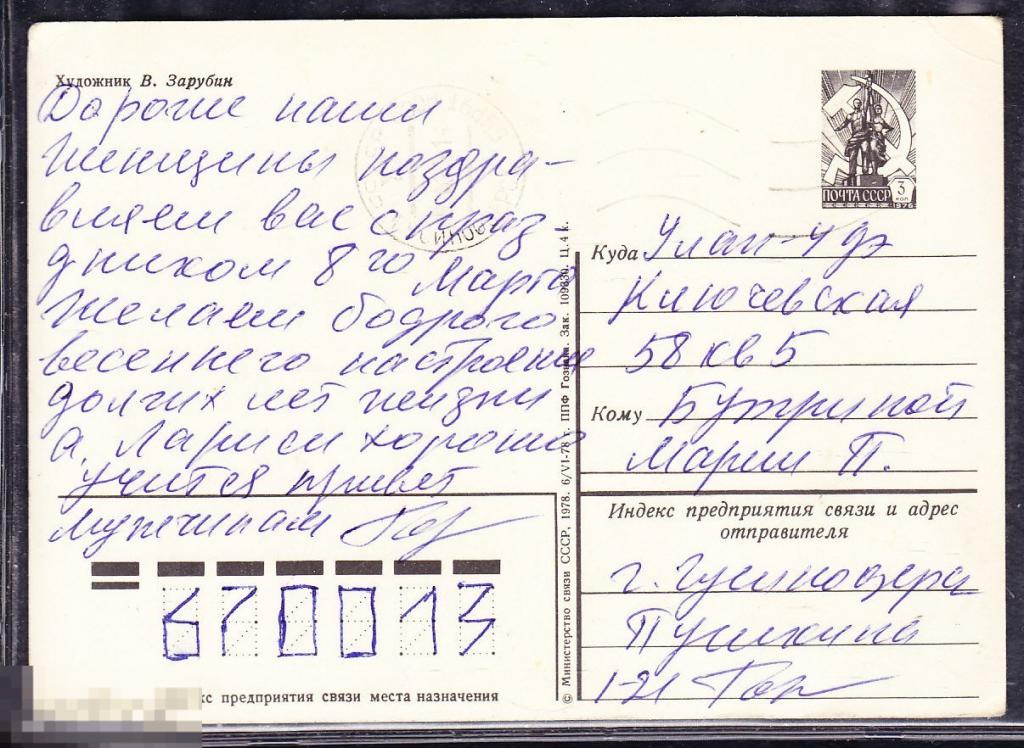 Художник В. Зарубин
Дорогие наши
женщины поздра-
вляем вас с праз
дником 8го Марта
Желаем бодрого
весеннего настроения
долгих лет жизни
а Ларисе хорошо
учится привет
мужчинам
670013
кс предприятия связи места назначения
© Министерство связи СССР, 1978. 6/VI-78 г. ППФ Гознака. Зак. 109330. Ц. 4 к.
ПОЧТА СССР 3 коп
1976
Куда Улан-Удэ
Ключевская
58 кв 5
Кому Бутриной
Марии П.
Индекс предприятия связи и адрес
отправителя
г. Гусиноозерск
Пушкина
1-21